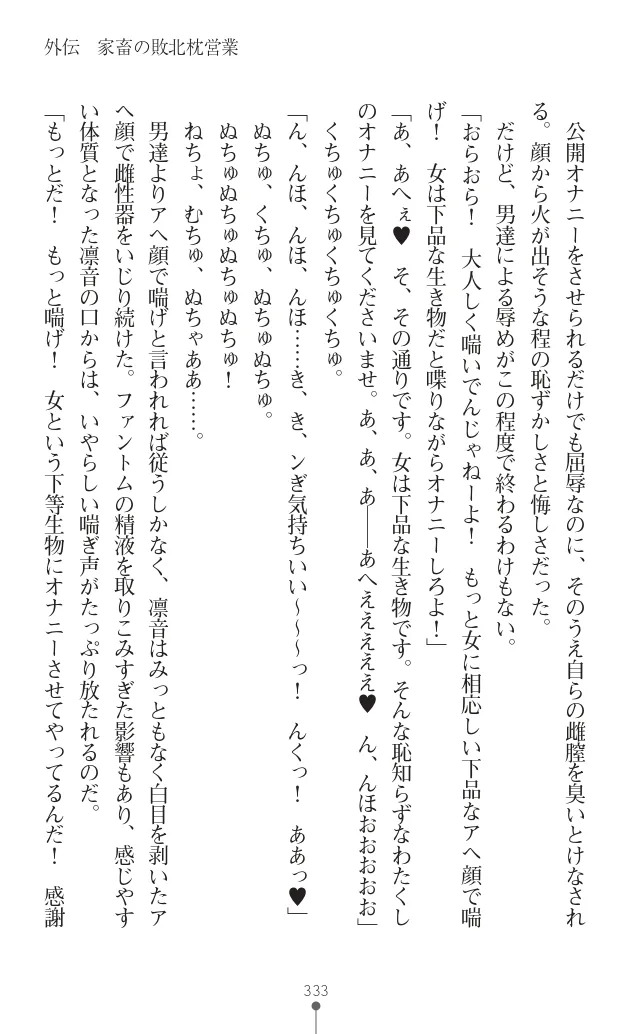 外伝　家畜の敗北枕営業
　公開オナニーをさせられるだけでも屈辱なのに、そのうえ自らの雌膣を臭いとけなされ
る。顔から火が出そうな程の恥ずかしさと悔しさだった。
　だけど、男達による辱めがこの程度で終わるわけもない。
「おらおら！　大人しく喘いでんじゃねーよ！　もっと女に相応しい下品なアヘ顔で喘
げ！　女は下品な生き物だと喋りながらオナニーしろよ！」
「あ、あへぇ♥　そ、その通りです。女は下品な生き物です。そんな恥知らずなわたくし
のオナニーを見てくださいませ。あ、あ、あ――あへえええええ♥　ん、んほおおおおお」
　くちゅくちゅくちゅくちゅ。
「ん、んほ、んほ、んほ……き、き、ンぎ気持ちいい～～～っ！　んくっ！　ああっ♥」
　ぬちゅ、くちゅ、ぬちゅぬちゅ。
　ぬちゅぬちゅぬちゅぬちゅ！
　ねちょ、むちゅ、ぬちゃああ……。
　男達よりアヘ顔で喘げと言われれば従うしかなく、凛音はみっともなく白目を剥いたア
ヘ顔で雌性器をいじり続けた。ファントムの精液を取りこみすぎた影響もあり、感じやす
い体質となった凛音の口からは、いやらしい喘ぎ声がたっぷり放たれるのだ。
「もっとだ！　もっと喘げ！　女という下等生物にオナニーさせてやってるんだ！　感謝
333